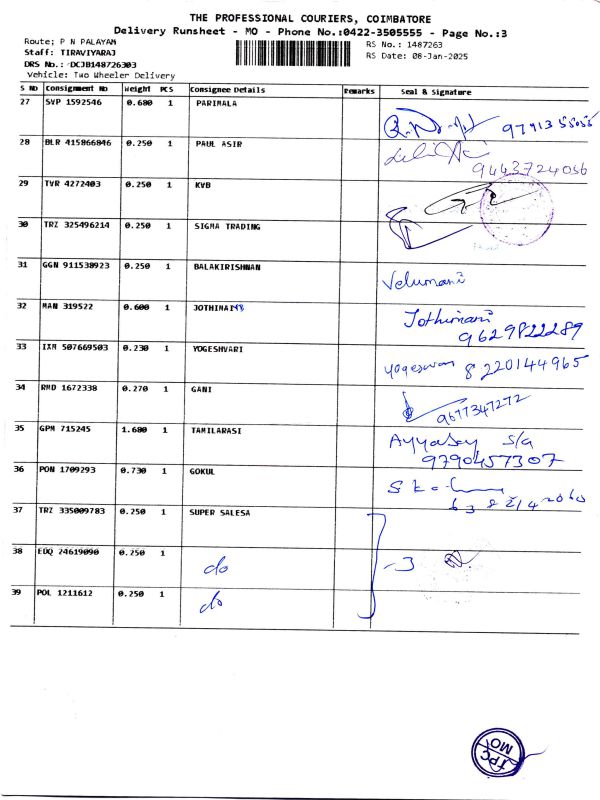 THE PROFESSIONAL COURIERS, COIMBATORE
Delivery Runsheet - MO - Phone No.:0422-3505555 - Page No.:3
Route: P N PALAYAM
RS No.: 1487263
Staff: TIRAVIYARAJ
RS Date: 08-Jan-2025
DRS No.: DCJB148726303
Vehicle: Two Wheeler Delivery
S No Consignment No Weight PCS Consignee Details Remarks Seal & Signature
27 SVP 1592546 0.680 1 PARIMALA
28 BLR 415866846 0.250 1 PAUL ASIR 9443724036
29 TVR 4272403 0.250 1 KVB
30 TRZ 325496214 0.250 1 SIGMA TRADING
31 GGN 911538923 0.250 1 BALAKIRISHNAN Velumani
32 MAN 319522 0.600 1 JOTHIMANI Jothimani 9629822289
33 IXM 507669503 0.230 1 YOGESHVARI yogeswari 8220144965
34 RMD 1672338 0.270 1 GANI 9677347272
35 GPM 715245 1.680 1 TAMILARASI Ayyasey s/a 9790457307
36 PON 1709293 0.730 1 GOKUL
37 TRZ 335009783 0.250 1 SUPER SALESA
38 EDQ 24619090 0.250 1 do -3
39 POL 1211612 0.250 1 do
TPC
MO